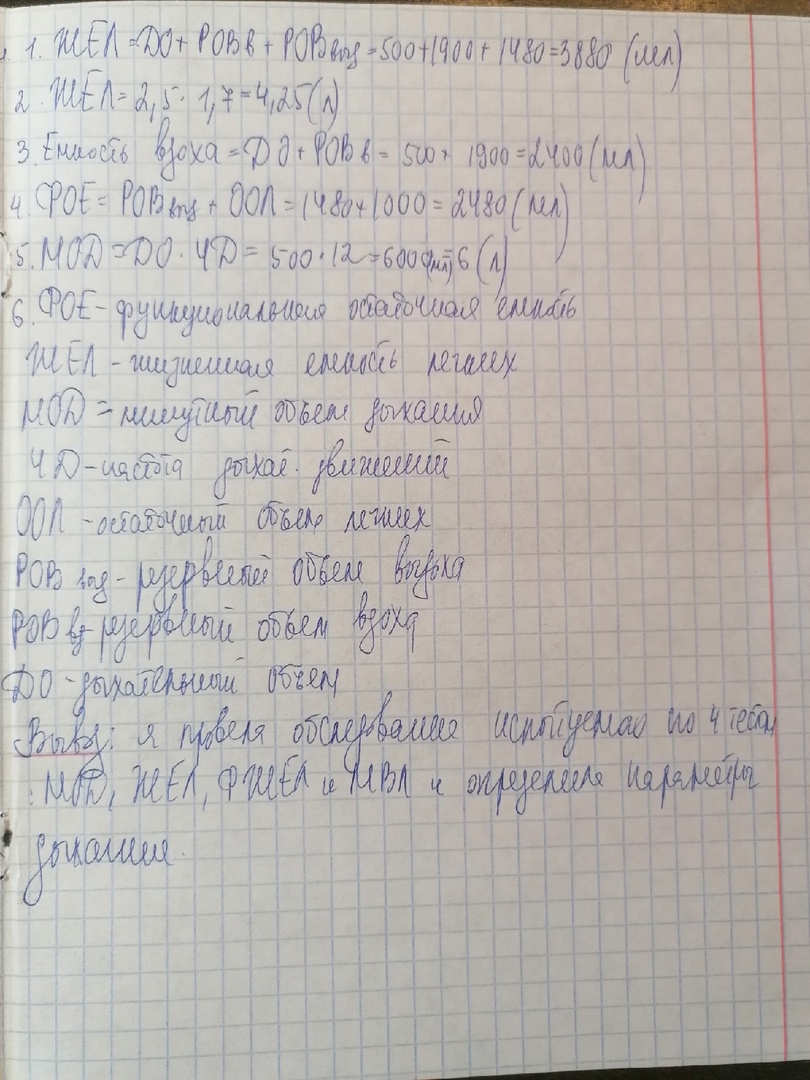 1. ЖЕЛ = ДО + РОВв + РОВвыд = 500+1900+1480=3880 (мл)
2. ЖЕЛ = 2,5 · 1,7 = 4,25 (л)
3. Емкость вдоха = ДО + РОВв = 500+ 1900 = 2400 (мл)
4. ФОЕ = РОВвыд + ООЛ = 1480+1000 = 2480 (мл)
5. МОД = ДО · ЧД = 500·12 = 6000(мл)=6 (л)
6. ФОЕ - функциональная остаточная емкость
ЖЕЛ - жизненная емкость легких
МОД - минутный объем дыхания
ЧД - частота дыхат. движений
ООЛ - остаточный объем легких
РОВ выд - резервный объем выдоха
РОВ вд - резервный объем вдоха
ДО - дыхательный объем
Вывод: я провела обследование испытуемого по 4 тестам
: МОД, ЖЕЛ, ФЖЕЛ и МВЛ и определила параметры
дыхания.